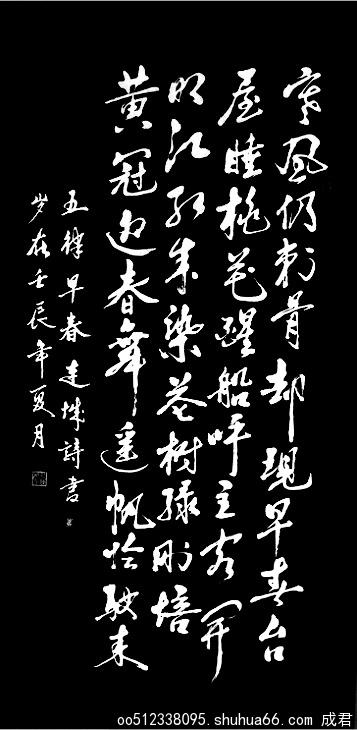 寒風仍刺骨却現早春台
屋睡桃花醒船呼主客开
明江红未染苍树绿刚培
黄冠迎春舞遥帆恰驶来
五律早春连城詩書
岁在壬辰年夏月
oo512338095.shuhua66.com 成君